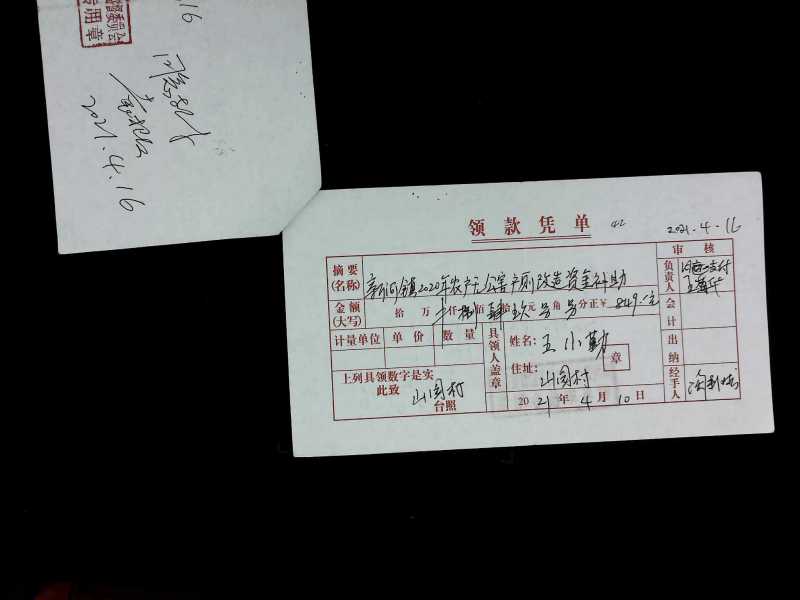 16
专用章
同意
2021.4.16
领款凭单
2021.4.16
摘要
(名称)
新河镇2020年农户无公害户厕改造资金补助
审核
负责人
同意支付
金额
(大写)
拾 万 仟 捌佰 肆拾 玖元 另角 另分正¥ 849.元
会计
计量单位 单价 数量
具领人盖章
姓名: 王小勤
章
出纳
住址: 山图村
上列具领数字是实
此致
山图村
台照
2021年4月10日
经手人